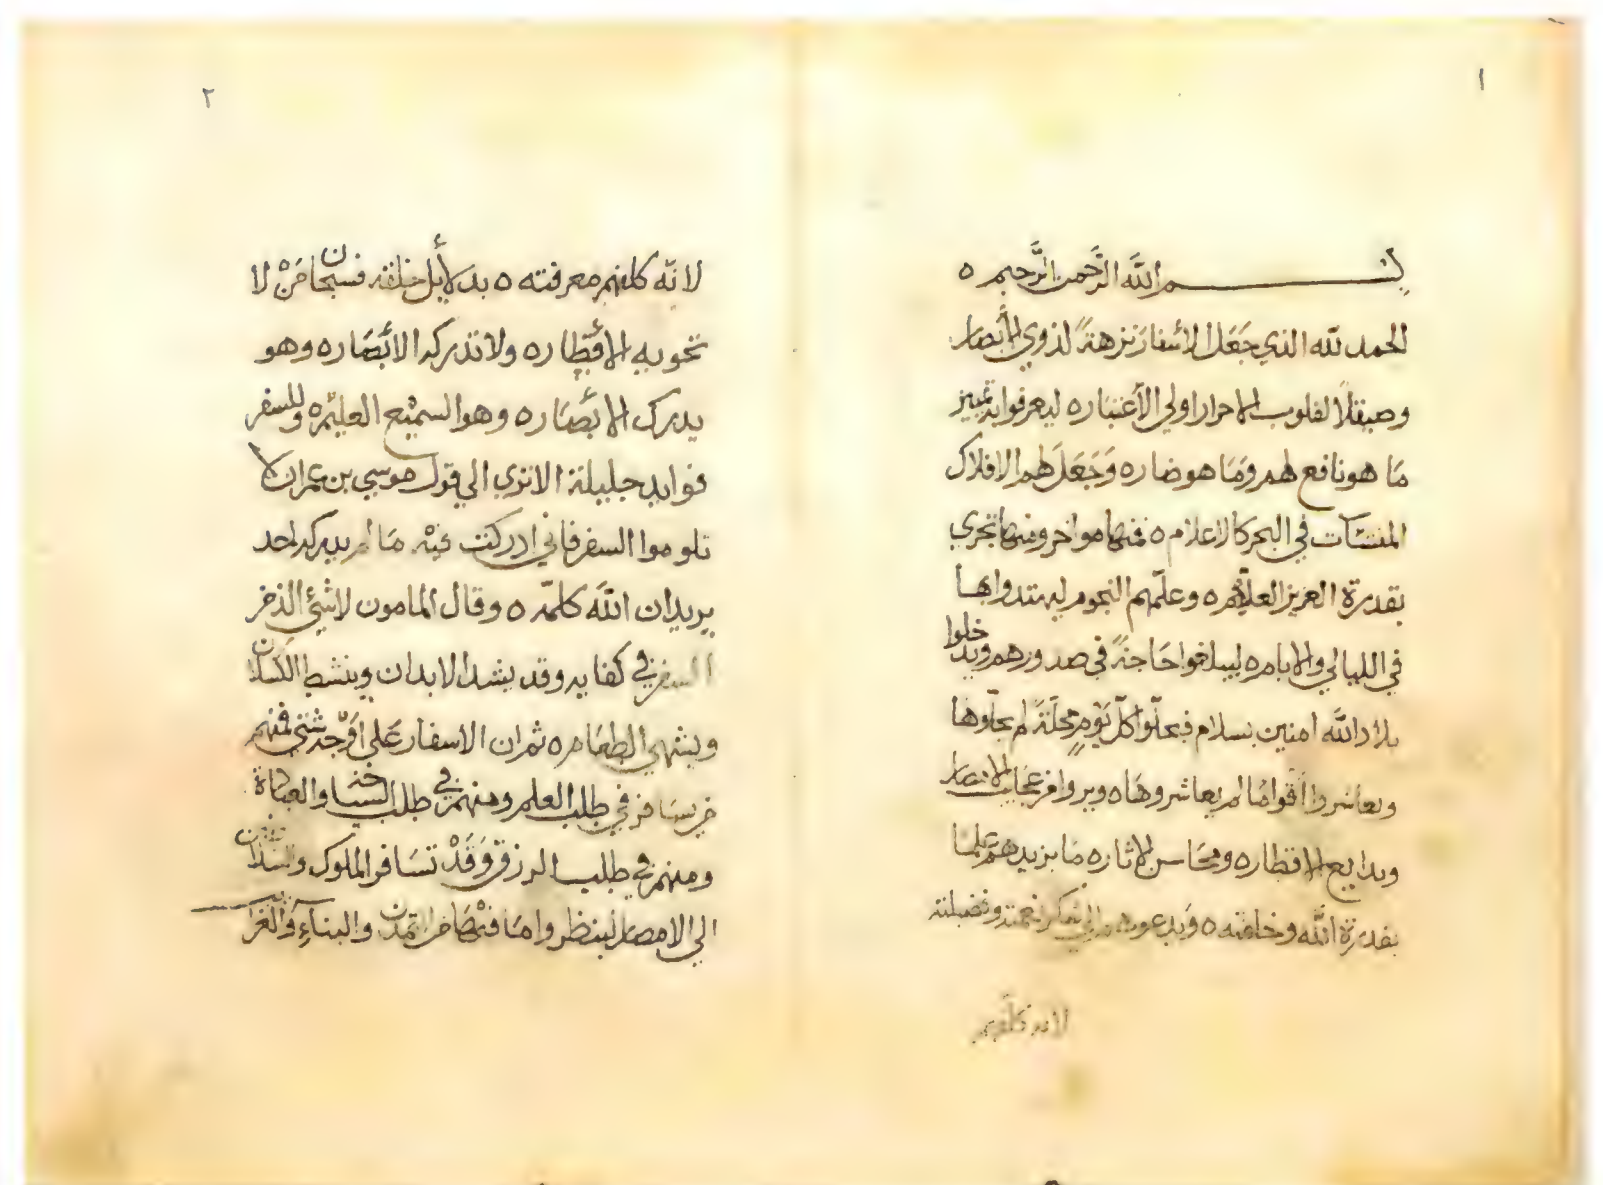 ١
بسم الله الرحمن الرحيم ٥
الحمد لله الذي جَعَل الأسفار نزهةً لذوي الأبصار
وصيقلاً لقلوب الاحرار اولي الأعتبار ٥ ليعرفوا بتمييز
مَا هو نافع لهم ومَا هو ضار ٥ وَجَعَلَ لهم الافلاك
المنشآت في البحر كالاعلام ٥ فمنها مواخر ومنها تجري
بقدرة العزيز العليم ٥ وعلّمهم النجوم ليهتدوا بها
في الليالي والايام ٥ ليبلغوا حَاجةً في صدورهم ويدخلوا
بلاد الله امنين بسلام فيحلّوا كلّ يَوْمٍ محلّةً لم يحلّوها
ويعاشروا اقوامًا لم يعاشروهَا ٥ ويروا من عجايب الامصار
وبدايع الاقطار ٥ ومحَاسن الاثار ٥ مَا يزيدهم علما
بقدرة الله وخلقته ٥ وَيدعوهم الي شكر نعمته وفضيلته
لانه كلفهم
٢
لانّه كلفهم معرفته ٥ بدلايل خلقته فسبحان مَنْ لا
تحويه الاقطار ٥ ولا تدركه الابْصَار ٥ وهو
يدرك الابصَار ٥ وهو السميْع العليْم ٥ وللسفر
فوايد جليلة الا تري الي قول موسي بن عمران لا
تلوموا السفر فاني ادركت فيْه مَا لم يدركه احد
يريد ان الله كلّمه ٥ وقال المامون لا شئ الذ من
السفر في كفايه وقد يشد الابدان وينشط الكسلان
ويشهي الطعَام ٥ ثم ان الاسفار عَلي اوْجه شتي فمنهم
من يسَافر في طلب العلم ومنهم في طلب السياحة والعبادة
ومنهم في طلب الرزق وَقَدْ تسَافر الملوك
الي الامصار لينظروا مَا فيْهَا من التمدن والبنآءِ والغر